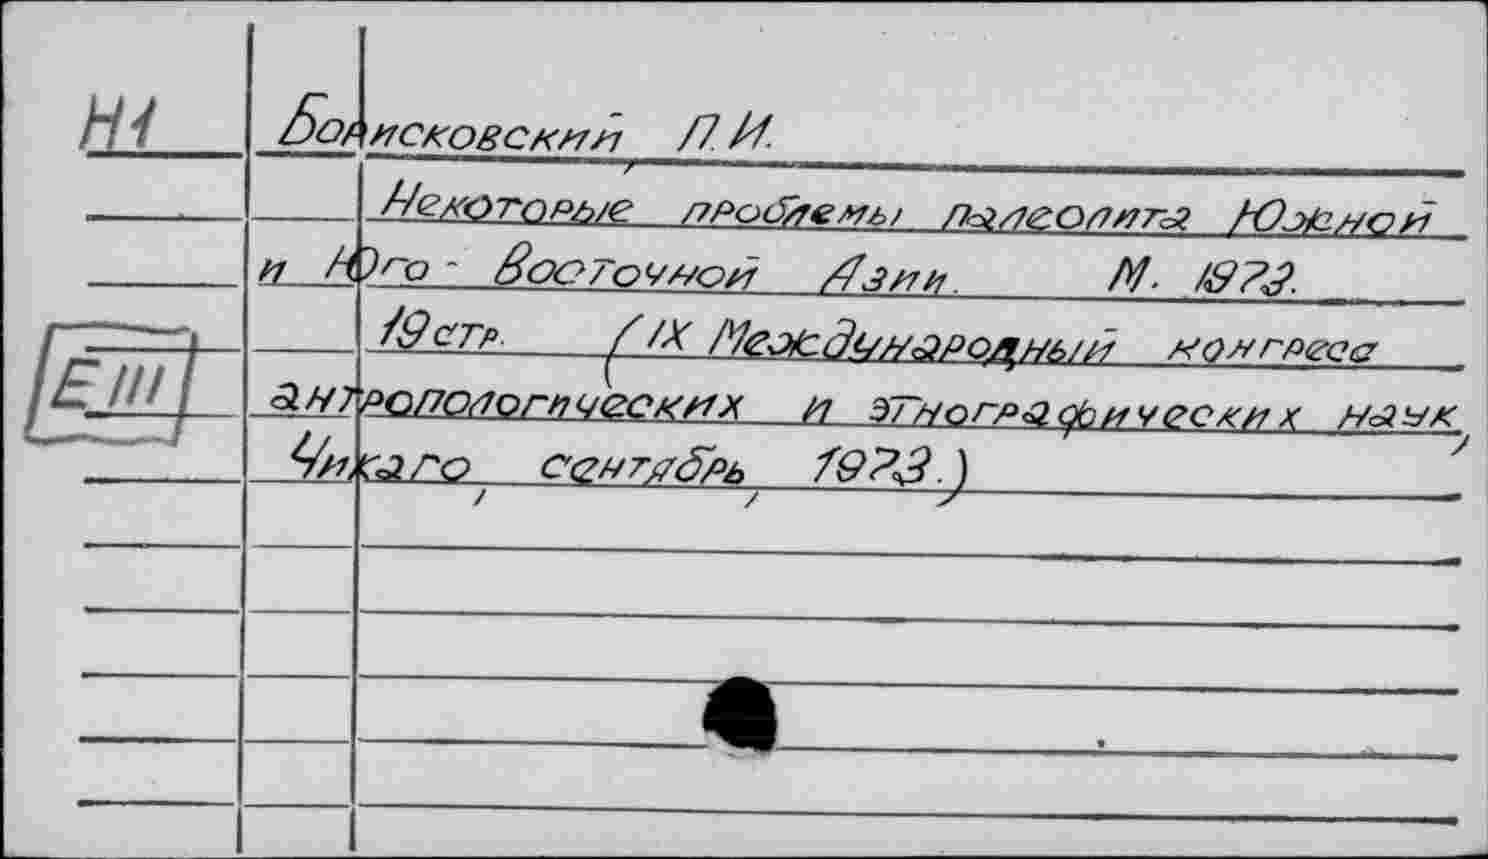 Н1 Борисковский П.И.
Некоторые проблемы палеолита Южной
и Юго-Восточной Азии. М. 1973.
19 стр. (IX Международный конгресс
ЕШ антропологических и этнографических наук,
Чикаго, сентябрь, 1973.)